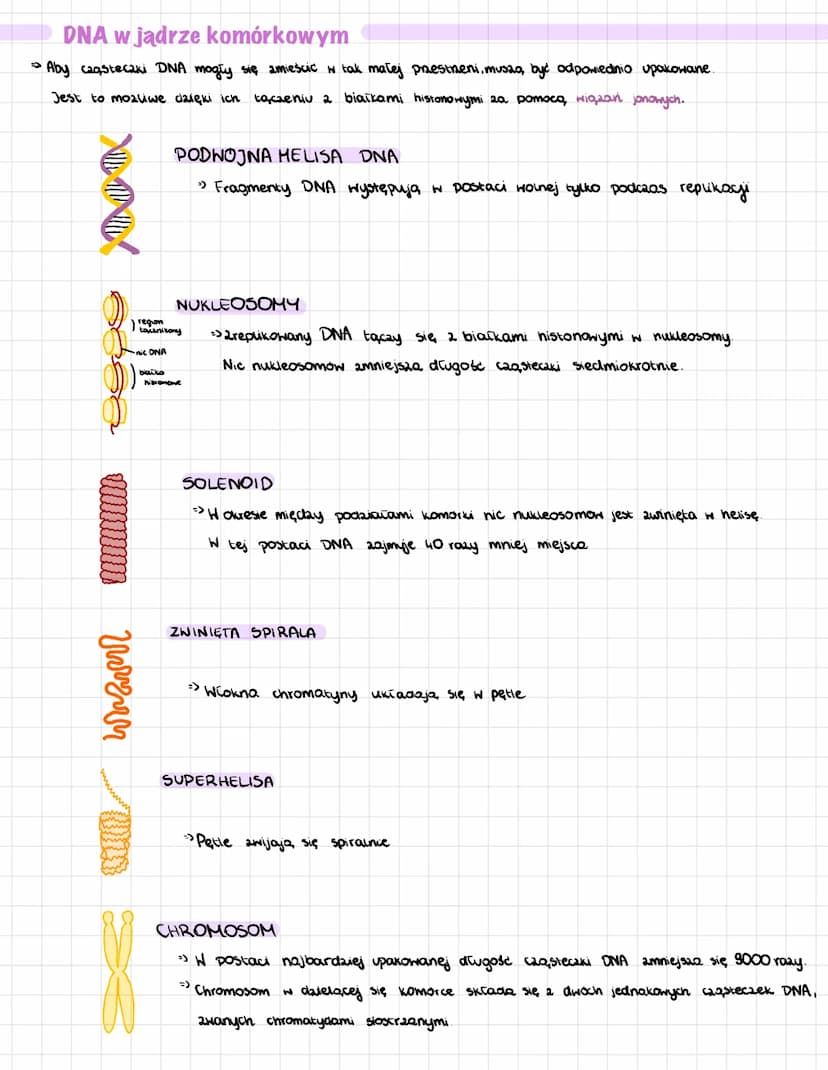 DNA w jądrze komórkowym
⇒ Aby cząsteczki DNA mogły się zmieścić w tak małej przestrzeni, muszą być odpowiednio upakowane.
Jest to możliwe dzięki ich łączeniu z białkami histonowymi za pomocą wiązań jonowych.
PODWÓJNA HELISA DNA
⇒ Fragmenty DNA występują w postaci wolnej tylko podczas replikacji
NUKLEOSOMY
region
łącznikowy
nić DNA
białko
histonowe
⇒ Zreplikowany DNA łączy się z białkami histonowymi w nukleosomy.
Nić nukleosomów zmniejsza długość cząsteczki siedmiokrotnie.
SOLENOID
⇒ W okresie między podziałami komórki nić nukleosomów jest zwinięta w helisę.
W tej postaci DNA zajmuje 40 razy mniej miejsca
ZWINIĘTA SPIRALA
⇒ Włókna chromatyny układają się w pętle
SUPERHELISA
⇒ Pętle zwijają się spiralnie
CHROMOSOM
⇒ W postaci najbardziej upakowanej długość cząsteczki DNA zmniejsza się 9000 razy.
⇒ Chromosom w dzielącej się komórce składa się z dwóch jednakowych cząsteczek DNA,
zwanych chromatydami siostrzanymi